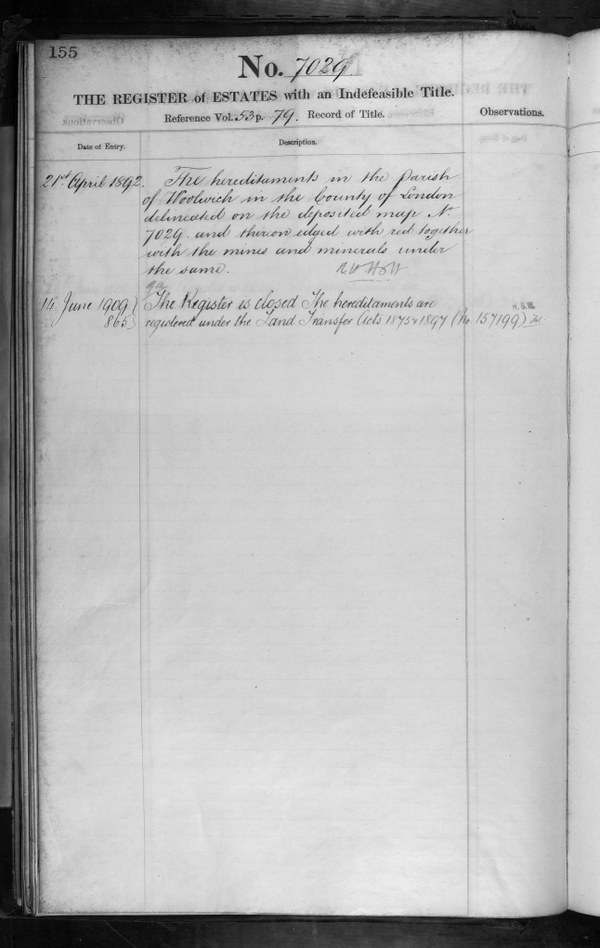 155
No. 7029
THE REGISTER of ESTATES with an Indefeasible Title.
Reference Vol. 53 p. 79. Record of Title.
Observations.
Date of Entry.
Description.
21st April 1892. The hereditaments in the Parish
of Woolwich in the County of London
delineated on the deposited map No.
7029 and thereon edged with red together
with the mines and minerals under
the same.
14 June 1909 } The Register is closed The hereditaments are
865 } registered under the Land Transfer Acts 1875 & 1897 (No. 157199)